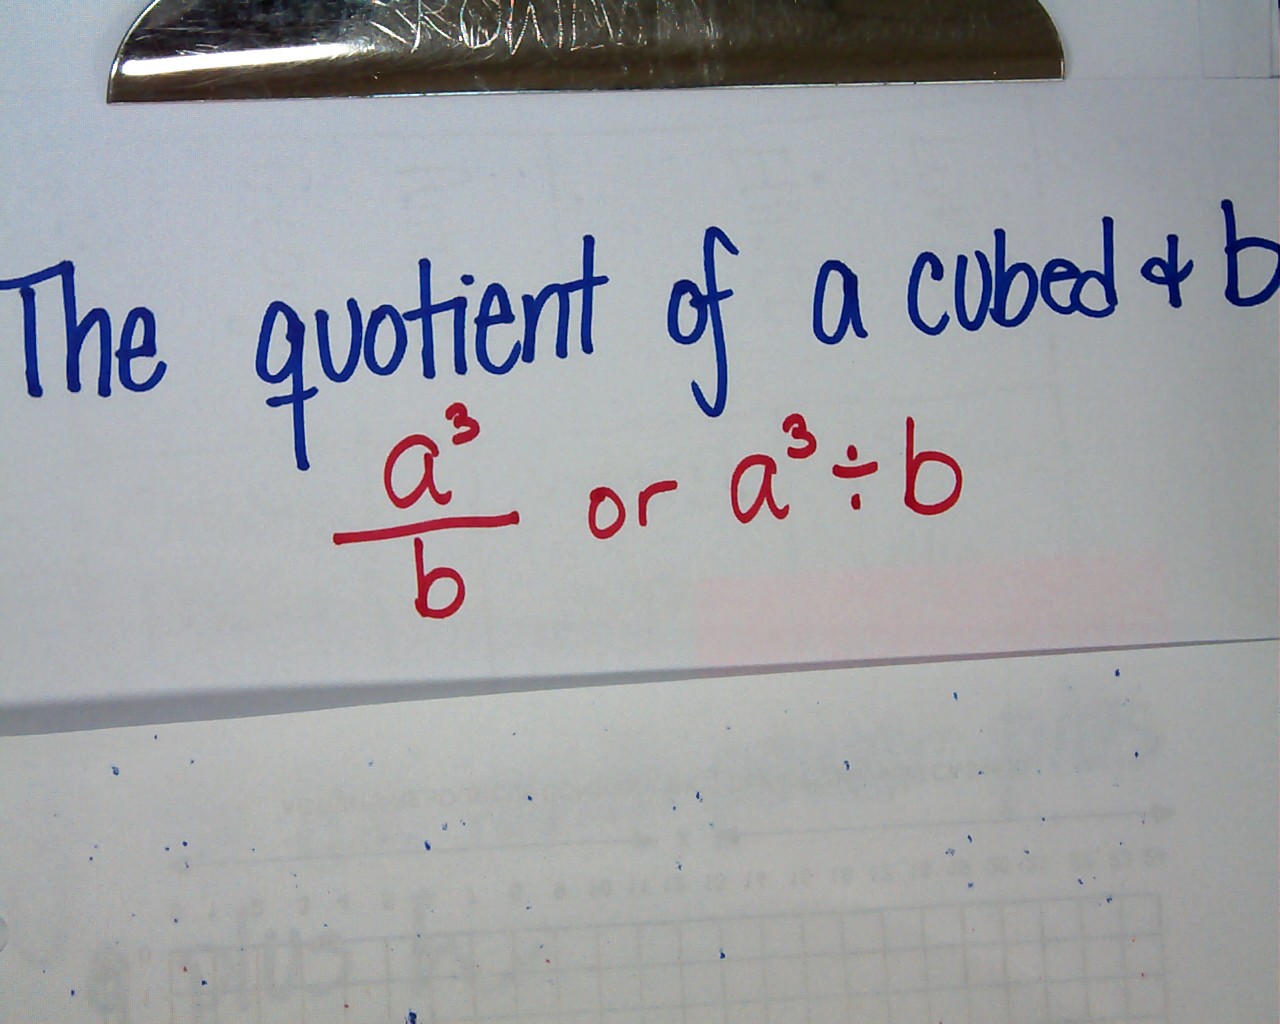 The quotient of a cubed & b
a³/b or a³ ÷ b